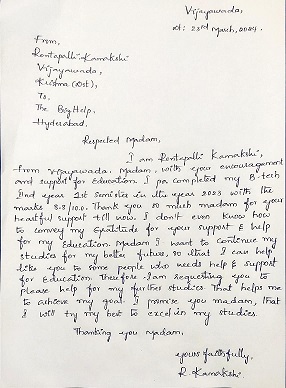 Vijayawada,
dt: 23rd March, 2024.
From,
Rontapalli Kamakshi
Vijayawada,
Krishna (Dist),
To,
The Big Help,
Hyderabad,
Respected Madam,
I am Rontapalli Kamakshi,
from Vijayawada. Madam, with your encouragement
and support for Education. I completed my B-tech
IInd year 1st semister in the year 2023 with the
marks 8.3/10.0. Thank you so much madam for your
heartful support till now. I don't even know how
to convey my gratitude for your support & help
for my Education. Madam I want to continue my
studies for my better future, so that I can help
like you to some people who needs help & support
for Education. Therefore I am requesting you to
please help for my further studies. That helps me
to achieve my goal. I promise you madam, that
I will try my best to excel in my studies.
Thanking you Madam,
yours faithfully,
R. Kamakshi.